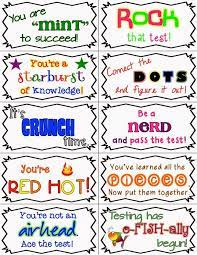 You are
"mint"
to succeed!
Rock
that test!
You're a
starburst
of knowledge!
Connect the
DOTS
and figure it out!
It's
CRUNCH
time
Be a
NeRD
and pass the test!
You're
RED HOT!
You've learned all the
Pieces
Now put them together
You're not an
airhead
Ace the test!
Testing has
o-FISH-ally
begun!